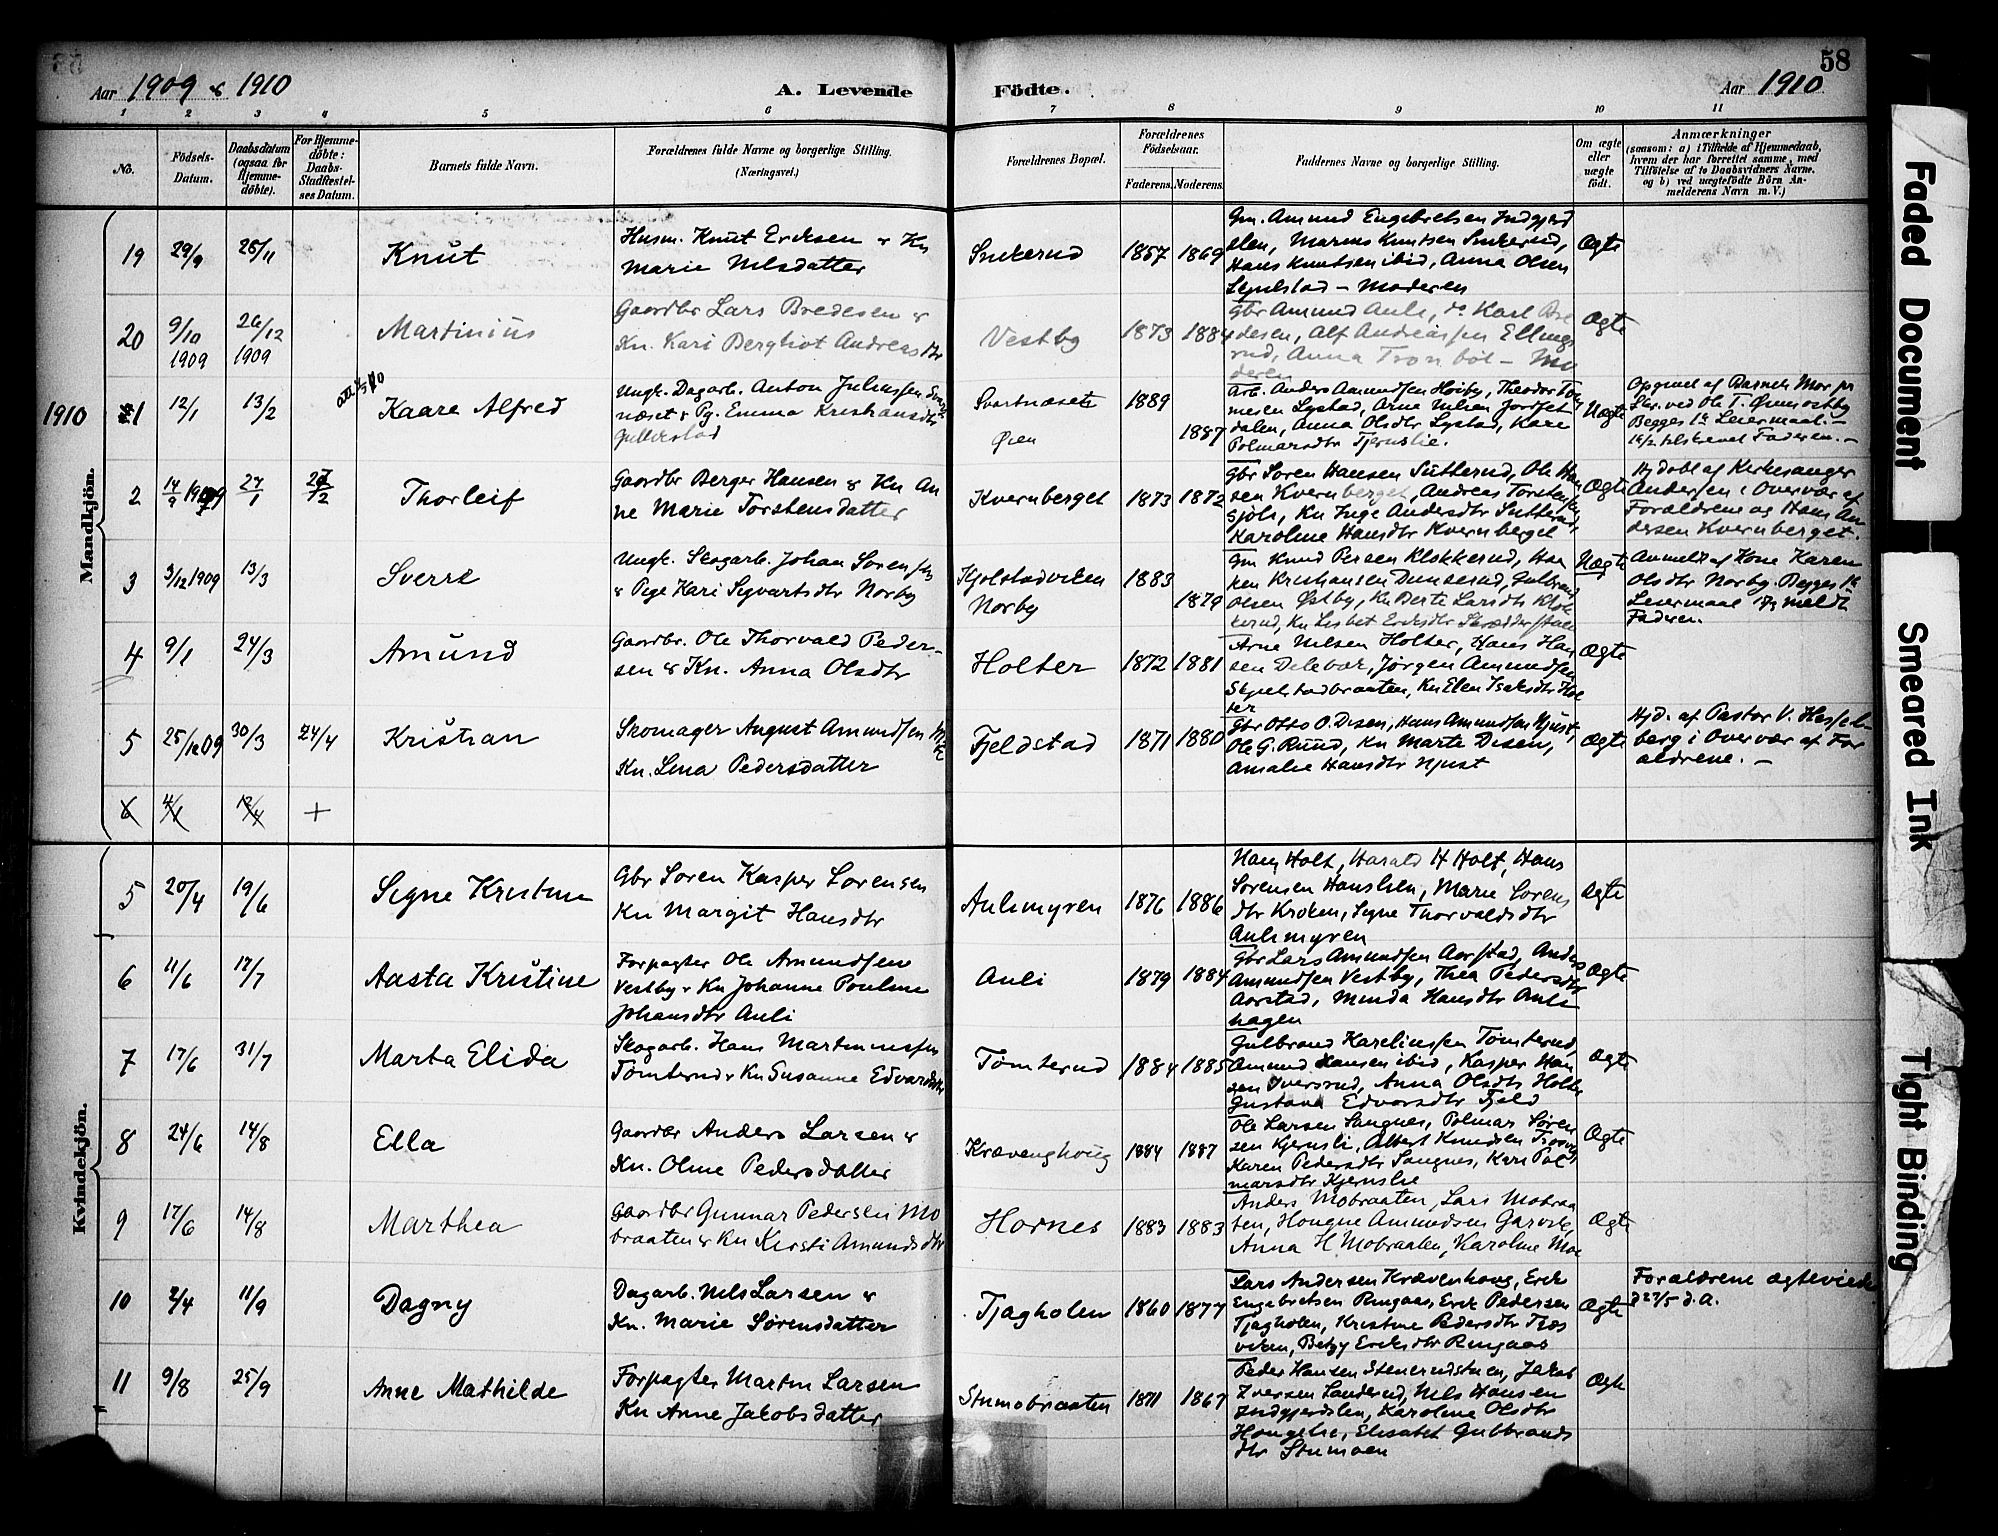 58
Aar 1909 & 1910
A. Levende Födte.
Aar 1910
1 2 3 4 5 6 7 8 9 10 11
No.
Födsels-Datum.
Daabsdatum (ogsaa for Hjemme-döbte).
For Hjemme-döbte: Daabs-Stadfæstel-ses Datum.
Barnets fulde Navn.
Forældrenes fulde Navne og borgerlige Stilling.
(Næringsvei.)
Forældrenes Bopæl.
Forældrenes Födselsaar.
Faderens. Moderens.
Faddernes Navne og borgerlige Stilling.
Om ægte eller uægte födt.
Anmærkninger
(saasom: a) i Tilfælde af Hjemmedaab, hvem der har forrettet samme, med Tilföielse af to Daabsvidners Navne. og b) ved uægtefödte Börn An-melderens Navn m.V.)
Mandkjön.
19 29/9 26/11 Knut
Husm. Knut Eriksen & Kn
Marie Nilsdatter
Snekerud 1857 1869
Gm. Amund Engebretsen Indgjerd
slen, Marius Knutsen Snekerud,
Hans Knutsen ibid, Anna Olsen
– Moderen
Ægte
20 9/10 1909 26/12 1909 Martinius
Gaardbr Lars Bredesen &
Kn. Kari Bergliot Andreasdtr
Vestby 1873 1884
Gbr Amund Auli, do Karl Bre
desen, Alf Andreassen Ellings
rud, Anna Tronbøl – Mo
deren
Ægte
1910
1 12/1 13/2 Kaare Alfred
Ungk. Dagarb. Anton Juliussen Svart
næset & Pg. Emma Kristiansdtr
Gullerstad
Svartnæset
Øien
1889
1887
Arb. Anders Amundsen Høiby, Theodor
Lystad, Arne Nilsen
dalen, Anna Olsdtr Lystad, Kari
Polmarsdtr Tjernslie.
Uægte
Opgivet af Barnets Mor
ved Ole T.
Begges 1ste Leiermaal. –
tilskrevet Faderen. –
2 14/9 1909 27/1 Thorleif
Gaardbr Berger Hansen & Kn An
ne Marie Torstensdatter
Kvernberget 1873 1872
Gbr Søren Hansen Sutterud, Ole Han
sen Kvernberget, Andreas Torstensen
Kn Inge Andersdtr Sutterud
Karoline Hansdtr Kvernberget
Ægte
Hjdøbt af Kirkesanger
Andersen i Overvær af
Forældrene og Hans An
dersen Kvernberget.
3 3/12 1909 13/3 Sverre
Ungk. Skogarb. Johan Sørensen
& Pige Kari Sigvartsdtr Norby
Kjolstadviken
Norby
1883
1879
Gm Knud Persen Klokkerud, Haa
ken Kristiansen Dunserud, Gulbrand
Olsen Østby, Kn Berte Larsdtr Klok
kerud, Kn Lisbet Eriksdtr
Uægte
Anmeldt af Kone Karen
Olsdtr Norby. Begges 1ste
Leiermaal meldt
Faderen.
4 9/1 24/3 Amund
Gaardbr. Ole Thorvald Peder-
sen & Kn. Anna Olsdtr
Holter 1872 1881
Arne Nilsen Holter, Hans Han
sen Delebæk, Jørgen Amundsen
Skjelstadbraaten, Kn Elen Isaksdtr Hol
ter
Ægte
5 25/12 09 30/3 24/4 Kristian
Skomager August Amundsen
Kn. Lina Pedersdatter
Fjeldstad 1871 1880
Gbr Otto O. Disen, Hans Amundsen Njust,
Ole G. Ruud, Kn Marte Disen,
Amalie Hansdtr Njust
Ægte
Hjd. af Pastor V. Hassel
berg i Overvær af For
ældrene. –
6 4/1 12/4 +
Kvindekjön.
5 20/4 19/6 Signe Kristine
Gbr Søren Kasper Sørensen
Kn Margit Hansdtr
Aulimyren 1876 1886
Hans Holt, Harald H Holt, Hans
Sørensen Hanslien, Marie Sørens
dtr Kroken, Signe Thorvaldsdtr
Aulimyren
Ægte
6 11/6 17/7 Aasta Kristine
Forpagter Ole Amundsen
Vestby & Kn Johanne Pouline
Johansdtr Auli
Auli 1879 1884
Gbr Lars Amundsen Aarstad, Anders
Amundsen Vestby, Thea Pedersdtr
Aarstad, Minda Hansdtr Auli
hagen
Ægte
7 17/6 31/7 Marta Elida
Skogarb. Hans Martinussen
Tomterud & Kn Susanne Edvardsdtr
Tomterud 1884 1885
Gulbrand Karelinssen Tomterud,
Amund Hansen ibid, Kasper Han
sen Iversrud, Anna Olsdtr Holter
Gustava Edvardsdtr Fjeld
Ægte
8 24/6 14/8 Ella
Gaardbr Anders Larsen &
Kn. Oline Pedersdatter
Krævenghoug 1884 1887
Ole Larsen Sangnes, Polmar Søren
sen Kjernsli, Albert Knudsen
Karen Pedersdtr Sangnes, Kari Pol
marsdtr Kjernslie
Ægte
9 17/6 14/8 Marthea
Gaardbr Gunnar Pedersen Mo
braaten & Kn Kersti Amundsdtr
Hornes 1883 1883
Anders Mobraaten, Lars Mobraa
ten, Hougne Amundsen Garvik,
Anna H Mobraaten, Karoline Moe
Ægte
10 2/4 11/9 Dagny
Dagarb. Nils Larsen &
Kn. Marie Sørensdatter
Tjagholen 1860 1877
Lars Andersen Krævenhoug, Erik
Engebretsen Ringaas, Erik Pedersen
Tjagholen, Kristine Pedersdtr Næs
viken, Betzy Eriksdtr Ringaas
Ægte
Forældrene ægteviede
d 27/5 d.A.
11 9/8 25/9 Anne Mathilde
Forpagter Martin Larsen
Kn Anne Jakobsdatter
Stumobraaten 1871 1867
Peder Hansen Stenerudstuen, Jakob
Iversen Sanderud, Nils Hansen
Indgjerdslen, Karoline Olsdtr
Hougslie, Elisabet Gulbrands
dtr Stumoen
Ægte
Faded Document
Smeared Ink
Tight Binding